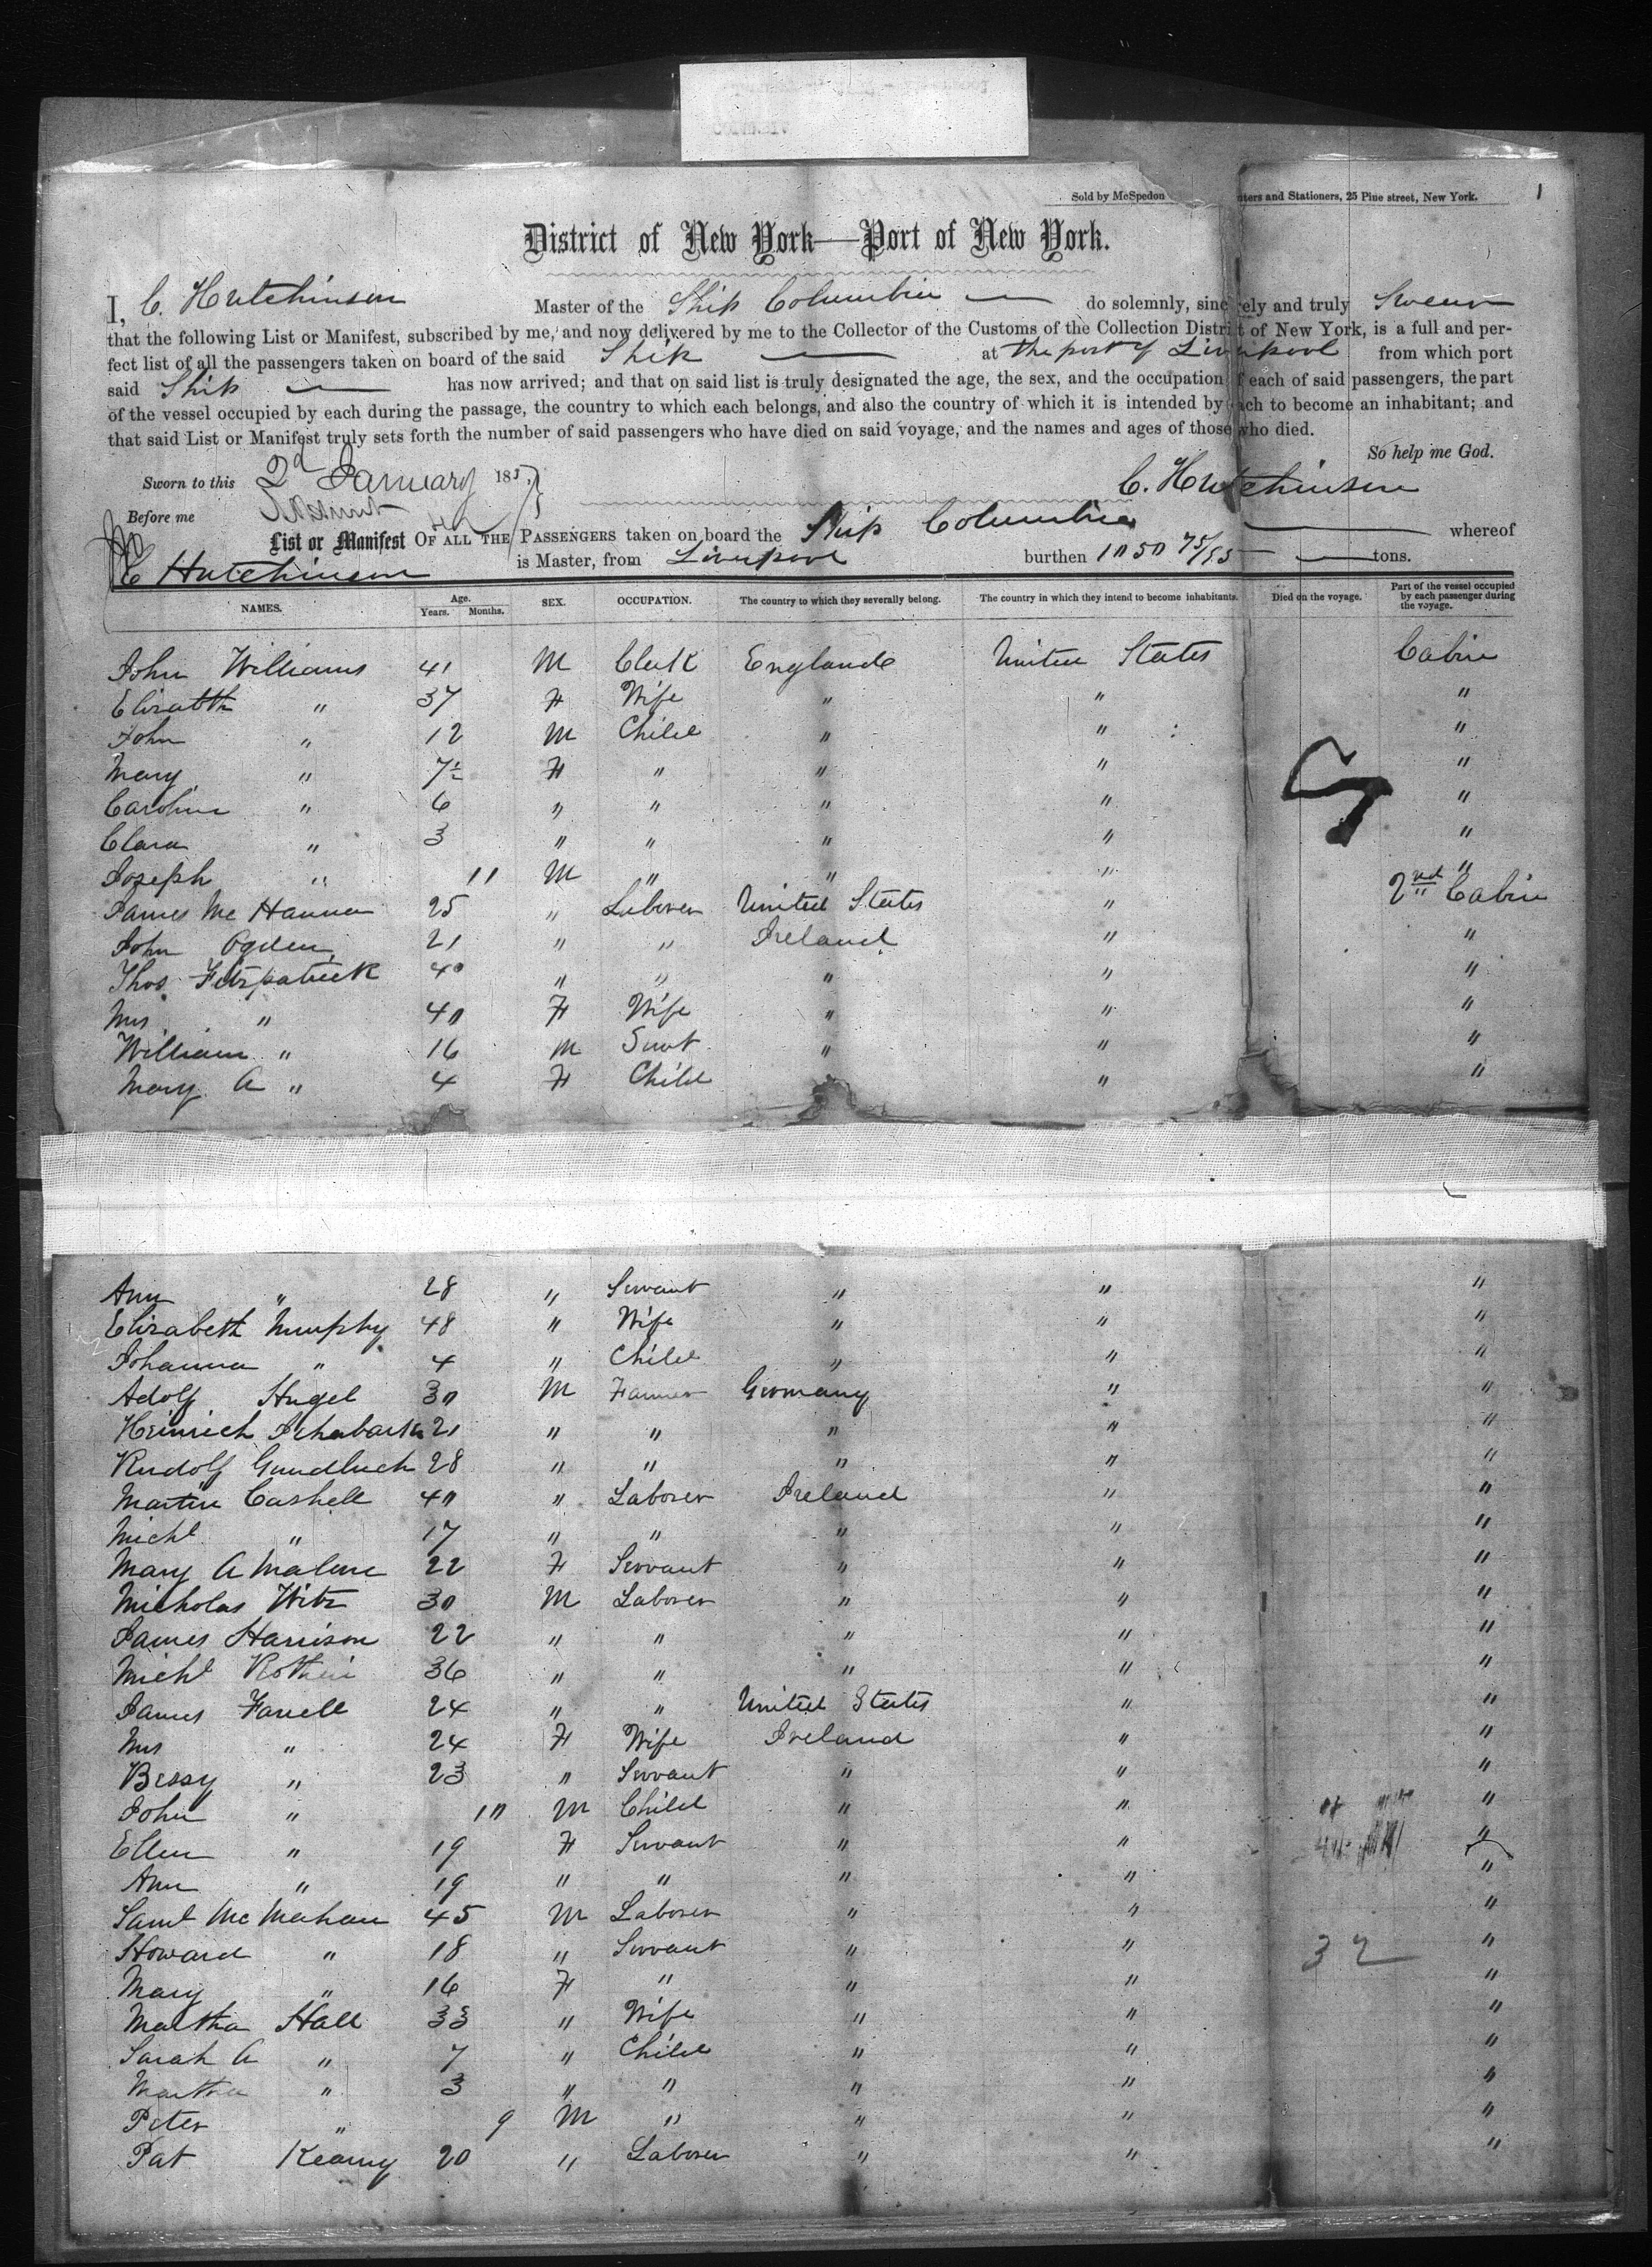 Sold by McSpedon nters and Stationers, 25 Pine street, New York. 1
District of New York—Port of New York.
I, C. Hutchinson Master of the Ship Columbia do solemnly, sincerely and truly Swear
that the following List or Manifest, subscribed by me, and now delivered by me to the Collector of the Customs of the Collection District of New York, is a full and per-
fect list of all the passengers taken on board of the said Ship at the port of Liverpool from which port
said Ship has now arrived; and that on said list is truly designated the age, the sex, and the occupation of each of said passengers, the part
of the vessel occupied by each during the passage, the country to which each belongs, and also the country of which it is intended by each to become an inhabitant; and
that said List or Manifest truly sets forth the number of said passengers who have died on said voyage, and the names and ages of those who died.
So help me God.
Sworn to this 2d January 185
C. Hutchinson
Before me
List or Manifest OF ALL THE PASSENGERS taken on board the Ship Columbia whereof
C Hutchinson is Master, from Liverpool burthen 1050 75/95 tons.
NAMES. Age. Years. Months. SEX. OCCUPATION. The country to which they severally belong. The country in which they intend to become inhabitants. Died on the voyage. Part of the vessel occupied by each passenger during the voyage.
John Williams 41 M Clerk England United States Cabin
Elizabeth " 37 F Wife " " "
John " 12 M Child " " "
Mary " 7½ F " " " "
Caroline " 6 " " " " "
Clara " 3 " " " " "
Joseph " 11 M " " " "
James Mc Hanna 25 " Laborer United States " 2nd Cabin
John Ogden 21 " " Ireland " "
Thos Fitzpatrick 40 " " " " "
Mrs " 40 F Wife " " "
William " 16 M Servt " " "
Mary A " 4 F Child " "
Ann " 28 " Servant " " "
Elizabeth Murphy 48 " Wife " " "
Johanna " 4 " Child " " "
Adolf Hugel 30 M Farmer Germany " "
Heinrich 21 " " " " "
Rudolf Gundluch 28 " " " " "
Martin Cashell 40 " Laborer Ireland " "
Michl " 17 " " " " "
Mary A Malone 22 F Servant " " "
Nicholas Witz 30 M Laborer " " "
James Harrison 22 " " " " "
Michl 36 " " " " "
James Farrell 24 " " United States " "
Mrs " 24 F Wife Ireland " "
Bessy " 23 " Servant " " "
John " 10 M Child " " "
Ellen " 19 F Servant " " "
Ann " 19 " " " " "
Saml Mc Mahan 45 M Laborer " " "
Howard " 18 " Servant " " 32 "
Mary " 16 F " " " "
Martha Hall 33 " Wife " " "
Sarah A " 7 " Child " " "
Martha " 3 " " " " "
Peter " 9 M " " " "
Pat Kearny 20 " Laborer " " "